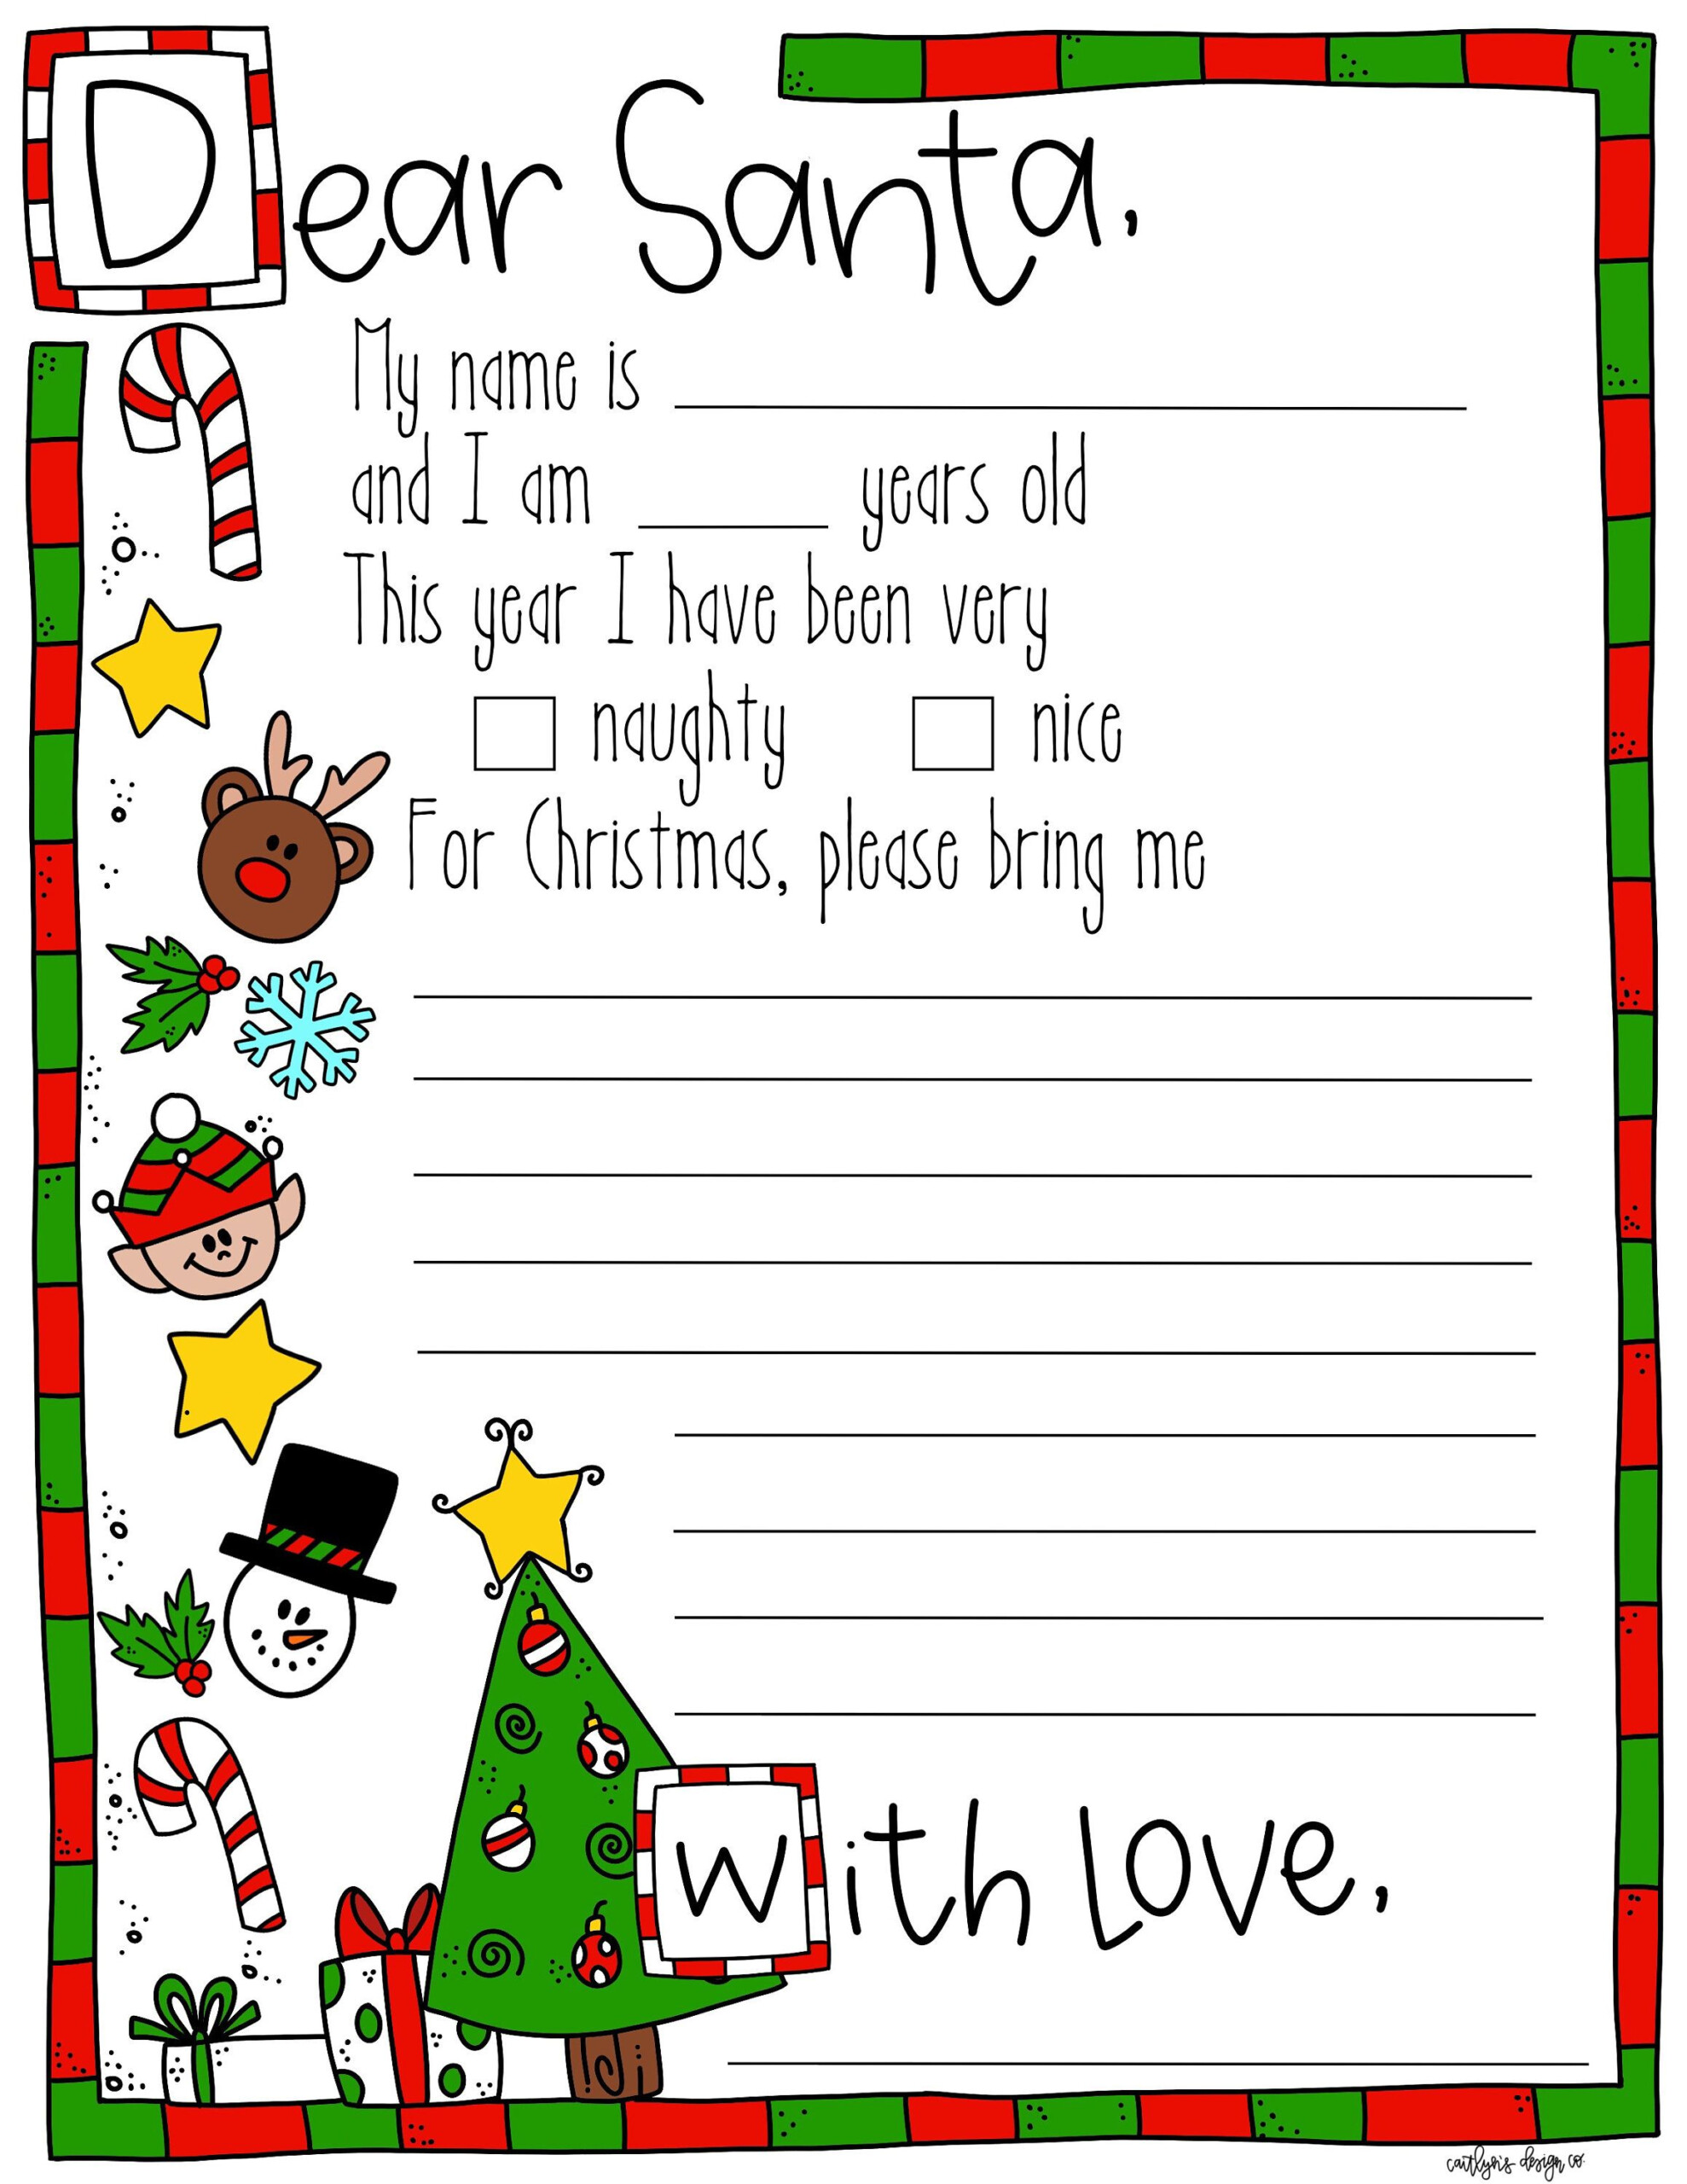 Dear Santa,
My name is
and I am years old
This year I have been very
naughty nice
For Christmas, please bring me
With Love,
caitlyn's design co.